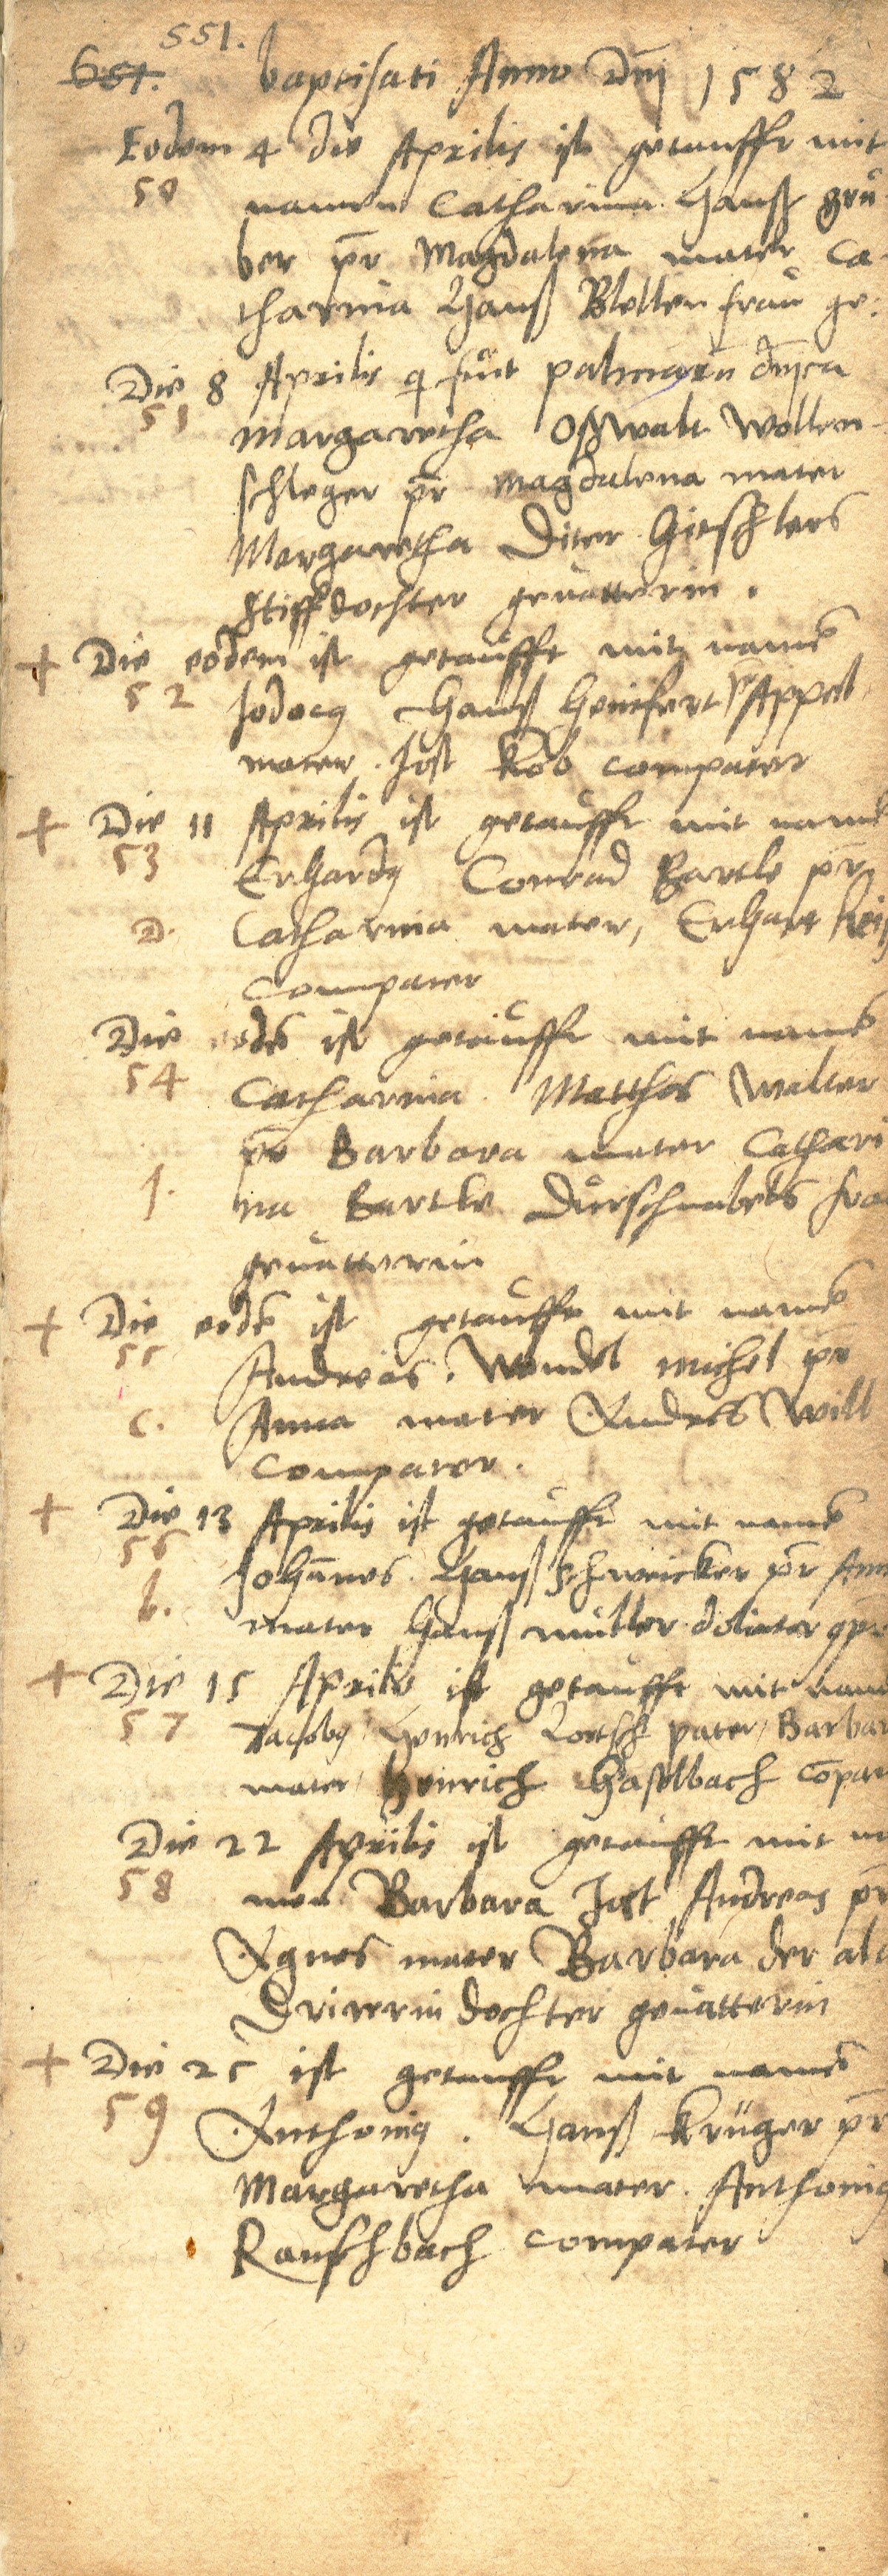 551.
651. baptisati Anno Dnj 1582
Eodem 4 die Aprilis ist getaufft mit
50 namen Catharina Hanß Grü
ber pr Magdalena mater Ca-
tharina Hanß Bletten frau ge:
Die 8 Aprilis q fuit palmarū dnjca
51 Margaretha Oßwalt Wollen-
schleger pr Magdalena mater
Margaretha Diter
stiffdochter gevatterin.
+ Die eodem ist getaufft mit namē
52 Jodocq Hanß pr Appel
mater. Jost Kob compater
+ Die 11 Aprilis ist getaufft mit namē
53 Erhardq Conrad Bartle pr
D. Catharina mater, Erhart
Compater
Die eodē ist getaufft mit namē
54 Catharina. Matthes Walter
pr Barbara mater Cathari
f. na Bartle Dürschnabels fra
gevatterin
+ Die eodē ist getaufft mit namē
55 Andreas. Wendel Michel pr
c. Anna mater Andres Will
Compater.
+ Die 13 Aprilis ist getaufft mit namē
56 Johānes. Hanß Schweicker pr Ann
b. mater Hanß Müller doliator
+ Die 15 Aprilis ist getaufft mit nam
57 Jacobq Henrich Lortsch pater, Barbar
mater, Henrich Haselbach cōpat
Die 22 Aprilis ist getaufft mit na
58 men Barbara Jost Andreas pr
Agnes mater Barbara der alt
dochter gevatterin
+ Die 25 ist getaufft mit namē
59 Anthoniq. Hanß Krüger pr
Margaretha mater. Anthoniq
Rauschbach compater